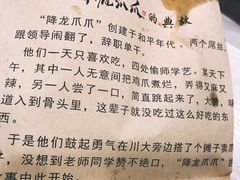 降龙爪爪的典故
“降龙爪爪”创建于和平年代。两个屌丝
跟领导闹翻了，辞职单干。
他们一天只喜欢吃，四处偷师学艺。某天下
午，其中一人无意间把鸡爪煮烂，弄得又麻又
辣，另一人尝了一口，简直跳起来了，大
道入到骨头里，这辈子就没吃过这么好吃的东
西。
于是他们鼓起勇气在川大旁边搭了个摊子卖
，没想到老师同学赞不绝口，“降龙爪爪”的
故事由此开始。